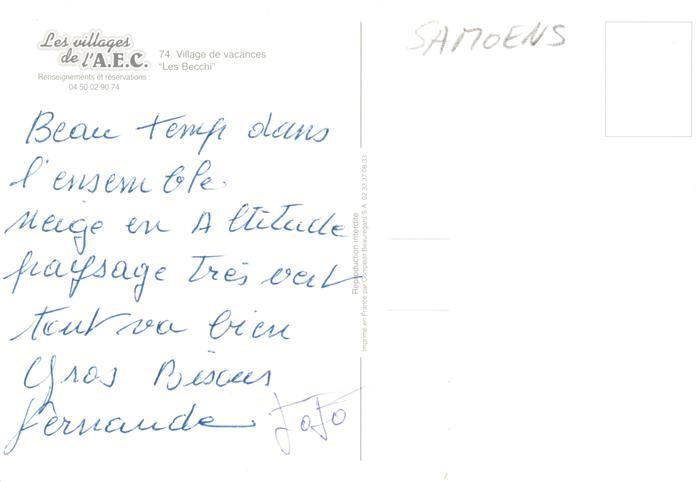 Les villages
de l'A.E.C.
Renseignements et réservations :
04 50 02 90 74
74. Village de vacances
"Les Becchi"
SAMOENS
Beau temp dans
l'ensemble
neige en Altitude
paysage très vert
tout va bien
Gros Bisous
Fernande JoJo
Reproduction interdite
Imprimé en France par Compedit Beauregard S.A. 02 33 37 08 33